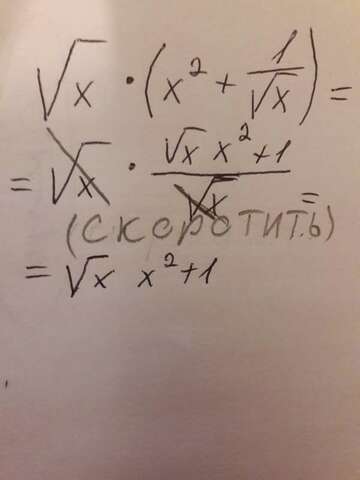 √x · (x² + 1/√x) =
= √x · (√x x² + 1)/√x =
(СКОРОТИТЬ)
= √x x² + 1